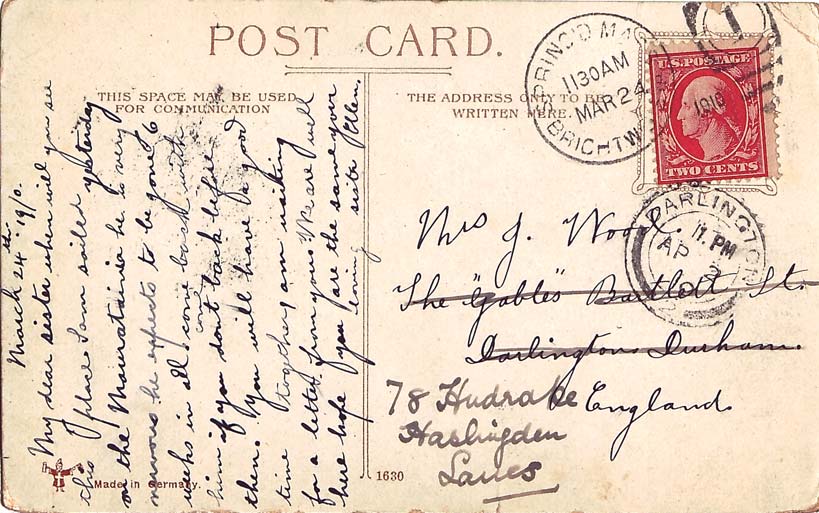 POST CARD.
THIS SPACE MAY BE USED
FOR COMMUNICATION
THE ADDRESS ONLY TO BE
WRITTEN HERE.
March 24th 1910.
My dear sister when will you see
this place Sam sailed yesterday
on the Mauratainia he is very
nervous he expects to be gone 6
weeks in all. come back with
him if you don't come back before
then. You will have a good
time together, am waiting
for a letter from yours We are well
here hope you are the same your
loving sister Ellen.
SPRING'D MA
1130 AM
MAR 24
1910
BRIGHTW
1
U.S. POSTAGE
TWO CENTS
DARLINGTON
11. PM
AP 2
Mrs J. Wood.
The "Gables" Bartlett St.
Darlington Durham.
England
78 Hudrake
Haslingden
Lancs
Made in Germany.
1630